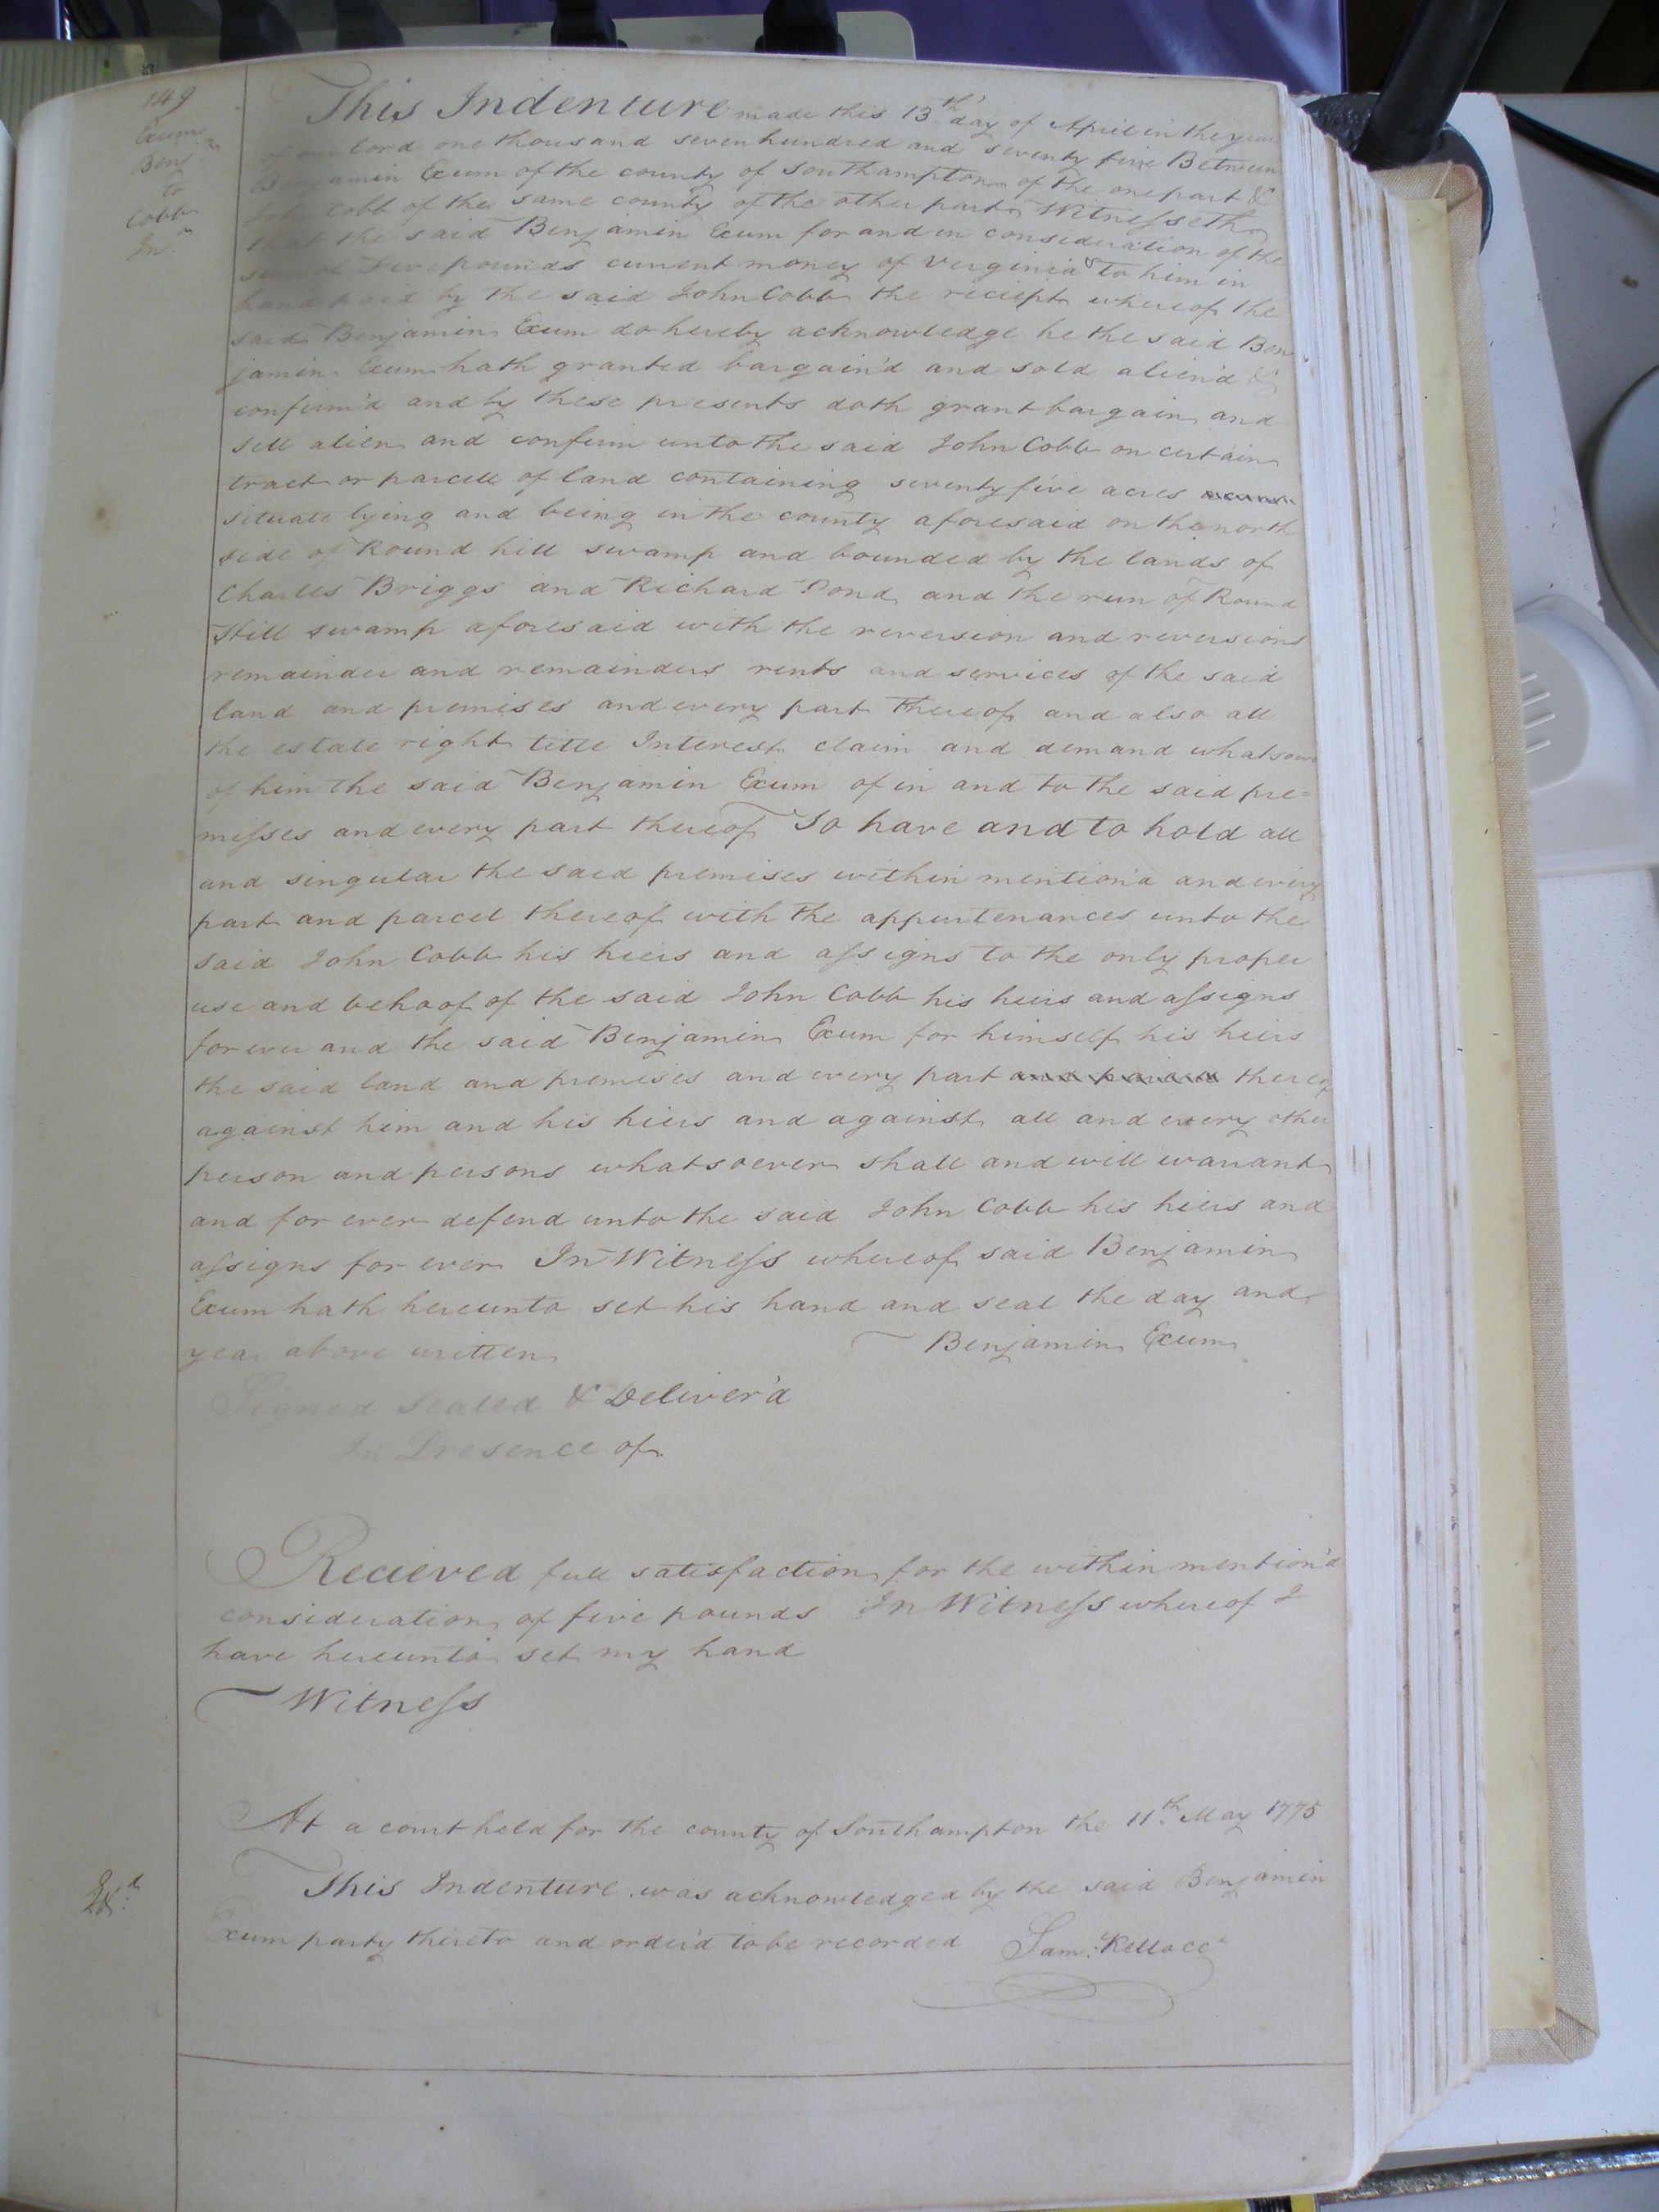 149
Exum
Benj.n
to
Cobb
Jn.o
This Indenture made this 13th day of April in the year
of our lord one thousand seven hundred and seventy five Between
Benjamin Exum of the county of Southampton of the one part &
John Cobb of the same county of the other part Witnesseth
that the said Benjamin Exum for and in consideration of the
sum of five pounds current money of Virginia to him in
hand paid by the said John Cobb the reciept whereof the
said Benjamin Exum do hereby acknowledge he the said Ben
jamin Exum hath granted bargain'd and sold alien'd &
confirm'd and by these presents doth grant bargain and
sell alien and confirm unto the said John Cobb on certain
tract or parcell of land containing seventy five acres
situate lying and being in the county aforesaid on the north
side of Round hill swamp and bounded by the lands of
Charles Briggs and Richard Pond and the run of Round
Hill swamp aforesaid with the reversion and reversions
remainder and remainders rents and services of the said
land and premises and every part thereof and also all
the estate right title Interest claim and demand whatsoever
of him the said Benjamin Exum of in and to the said pre=
misses and every part thereof To have and to hold all
and singular the said premises within mention'd and every
part and parcel thereof with the appurtenances unto the
said John Cobb his heirs and assigns to the only proper
use and behoof of the said John Cobb his heirs and assigns
for ever and the said Benjamin Exum for himself his heirs
the said land and premises and every part and parcel thereof
against him and his heirs and against all and every other
person and persons whatsoever shall and will warrant
and for ever defend unto the said John Cobb his heirs and
assigns for ever In Witness whereof said Benjamin
Exum hath hereunto set his hand and seal the day and
year above written
Benjamin Exum
Signed Sealed & Deliver'd
In Presence of
Recieved full satisfaction for the within mention'd
consideration of five pounds In Witness whereof I
have hereunto set my hand
Witness
At a court held for the county of Southampton the 11th May 1775
This Indenture was acknowledged by the said Benjamin
Exum party thereto and order'd to be recorded Sam.l Kello CC